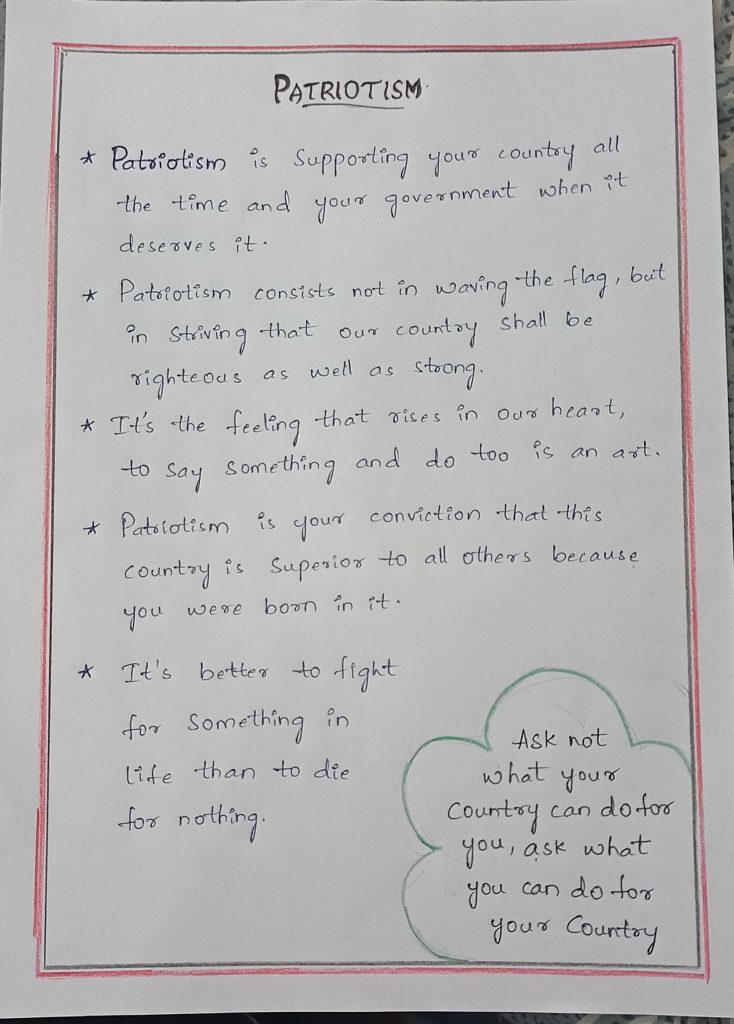 PATRIOTISM
* Patriotism is Supporting your country all
the time and your government when it
deserves it.
* Patriotism consists not in waving the flag, but
in striving that our country shall be
righteous as well as strong.
* It's the feeling that rises in our heart,
to say something and do too is an art.
* Patriotism is your conviction that this
country is Superior to all others because
you were born in it.
* It's better to fight
for Something in
life than to die
for nothing.
Ask not
what your
Country can do for
you, ask what
you can do for
your Country